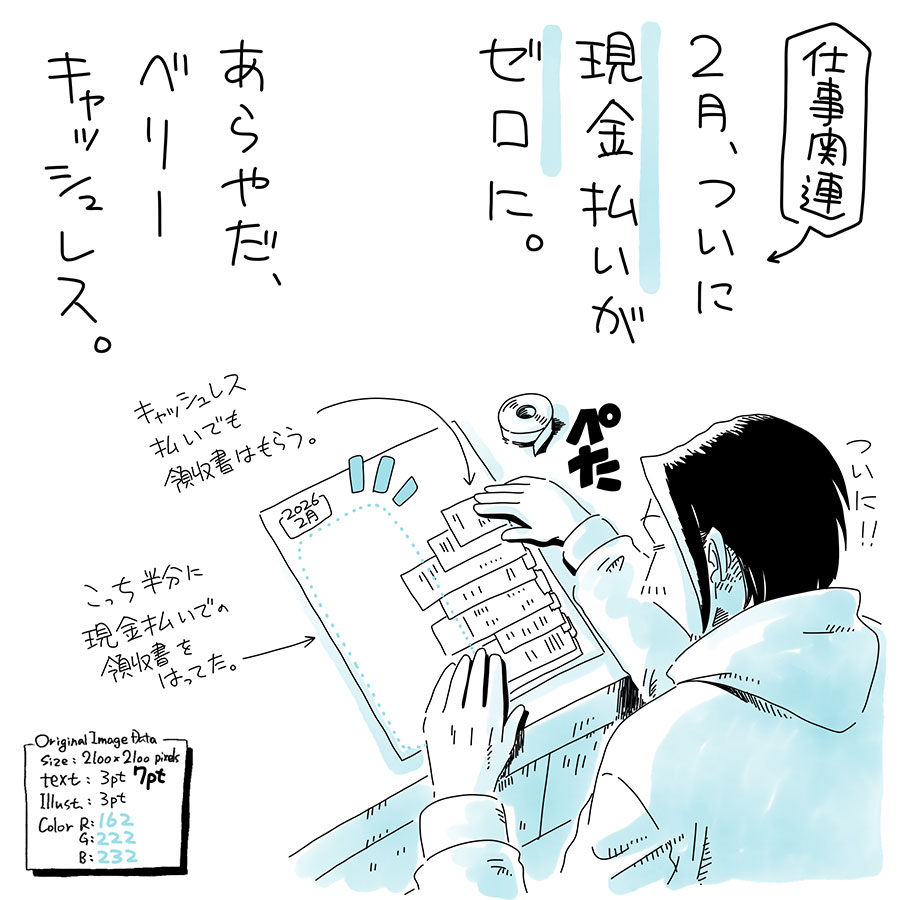 仕事関連
2月、ついに
現金払いが
ゼロに。
あらやだ、
ベリー
キャッシュレス。
キャッシュレス
払いでも
領収書はもらう。
ぺた
ついに!!
2026
2月
こっち半分に
現金払いでの
領収書を
はってた。
Original Image Data
Size: 2100×2100 pixels
text: 3pt 7pt
Illust.: 3pt
Color R: 162
G: 222
B: 232